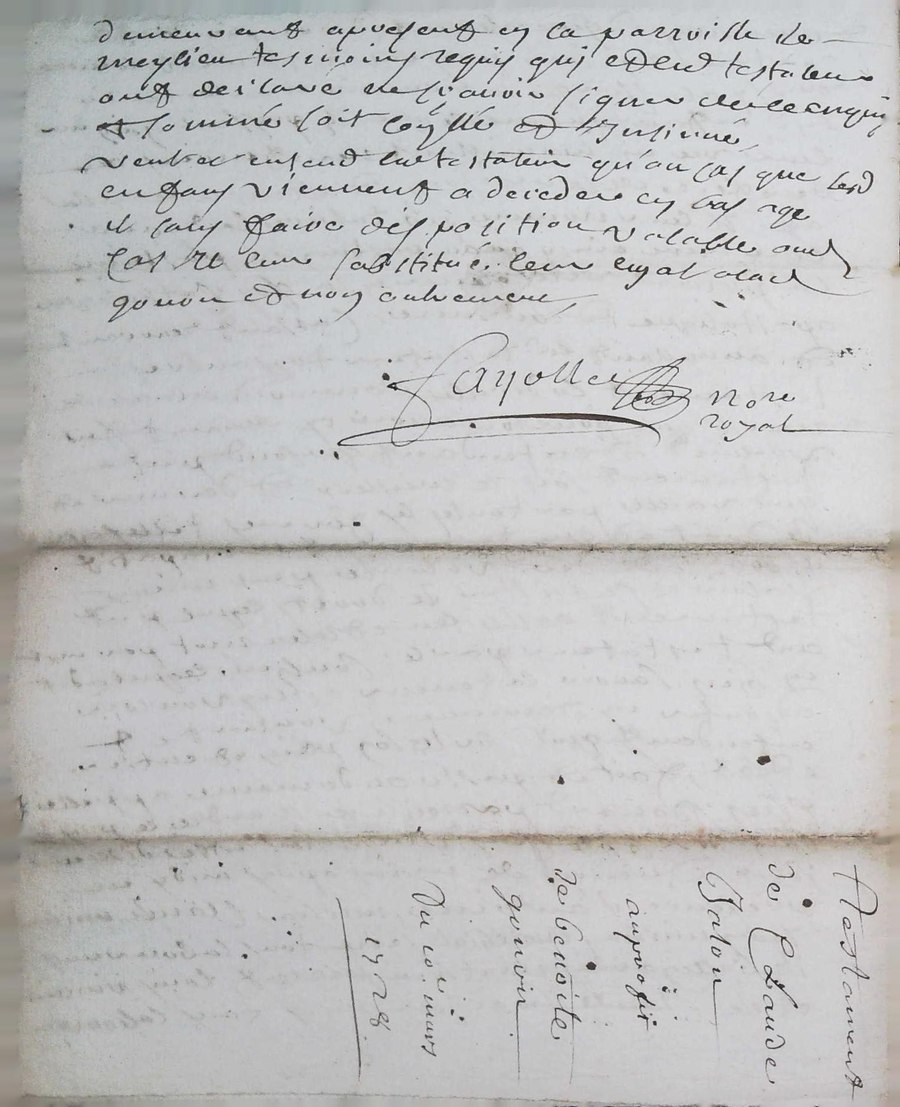 demeurant apresent en la parroisse de
meylieu tesmoins requis qui et led testateur
ont declaré ne sçavoir signer de ce enquis
et sommé soit coyllé et Insinué
veut et entend led testateur qu'au cas que lesd
enfans viennent a deceder en bas age
et sans faire disposition valable aud
cas il leur substitue leur
gonon et non autrement
fayolle nore
royal
Testament
de Claude
au profit
de benoite
gonon
Du mars
1728